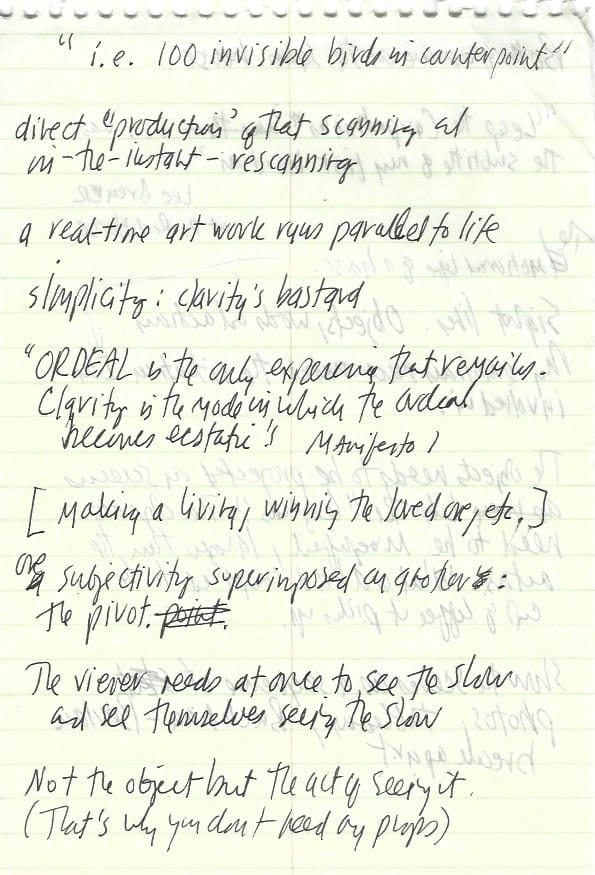 " i.e. 100 invisible birds in counterpoint"
direct "production" of that scanning and
in-the-instant-rescanning
a real-time art work runs parallel to life
simplicity: clarity's bastard
"ORDEAL is the only experience that remains.
Clarity is the mode in which the ordeal
becomes ecstatic" Manifesto 1
[ Making a living, winning the loved one, etc. ]
one subjectivity superimposed on another:
the pivot.
The viewer needs at once to see the slow
and see themselves seeing the slow
Not the object but the act of seeing it.
(That's why you don't need any props)